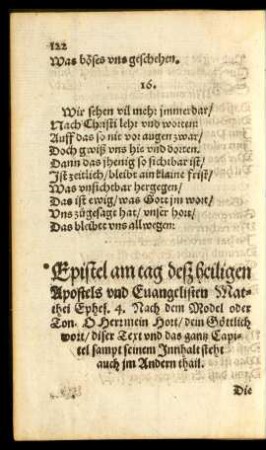 122
Was böses vns geschehen.
16.
Wir sehen vil mehr jmmerdar/
Nach Christi lehr vnd worten
Auff das so nit vor augen zwar/
Doch gwiß vns hie vnd dorten.
Dann das jhenig so sichtbar ist/
Ist zeitlich/ bleibt ain klaine frist/
Was vnsichtbar hergegen/
Das ist ewig/ was Gott jm wort/
Vns zůgesagt hat/ vnser hort/
Das bleibet vns allwegen:
Epistel am tag deß heiligen
Apostels vnd Euangelisten Mat-
thei Ephes. 4. Nach dem Model oder
Ton. O Herr mein Hort/ dein Göttlich
wort/ diser Text vnd das gantz Capi-
tel sampt seinem Innhalt steht
auch jm Andern thail.
Die